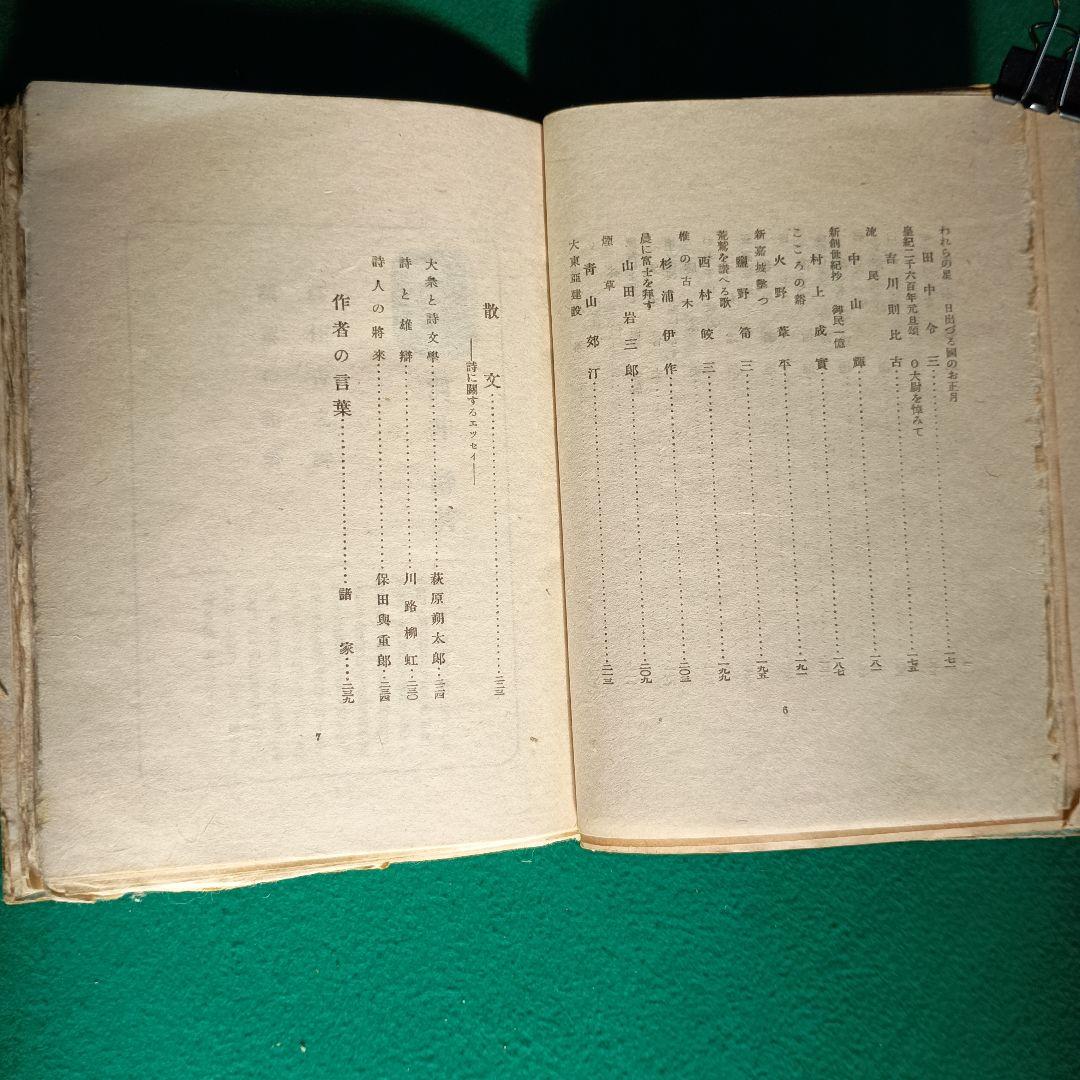 われらの星　日出づる國のお正月
田中令三……一七一
皇紀二千六百年元旦頌　O大尉を悼みて
吉川則比古……一七五
流民
中山輝……一八一
新創世紀抄　御民一億
村上成實……一八七
こころの谿
火野葦平……一九一
新嘉坡撃つ
朧野筍三……一九五
荒鷲を讃へる歌
西村皎三……一九九
椎の古木
杉浦伊作……二〇三
晨に富士を拜す
山田岩三郎……二〇九
煙草
青山郊汀……二一三
大東亞建設
6
散文……二二三
——詩に關するエッセイ——
大衆と詩文學……萩原朔太郎・二二四
詩と雄辯……川路柳虹・二三〇
詩人の將來……保田與重郎・二三四
作者の言葉……諸家……二三九
7